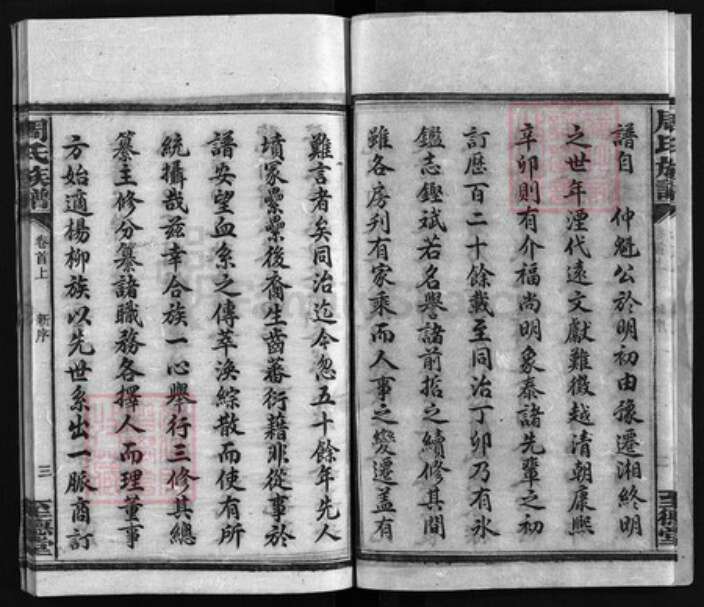 譜自　仲魁公於明初由豫遷湘終明
之世年湮代遠文獻難徵越清朝康熙
辛卯則有介福尚明象泰諸先輩之初
訂歷百二十餘載至同治丁卯乃有氷
鑑志鏗斌若名譽諸前哲之續修其間
雖各房刋有家乘而人事之變遷蓋有
難言者矣同治迄今忽五十餘年先人
墳冢纍纍後裔生齒蕃衍藉非從事於
譜安望血系之傳萃渙綜散而使有所
統攝哉茲幸合族一心舉行三修其總
纂主修分纂諸職務各擇人而理董事
方始適楊柳族以先世系出一脈商訂
周氏族譜
卷首上
新序
三